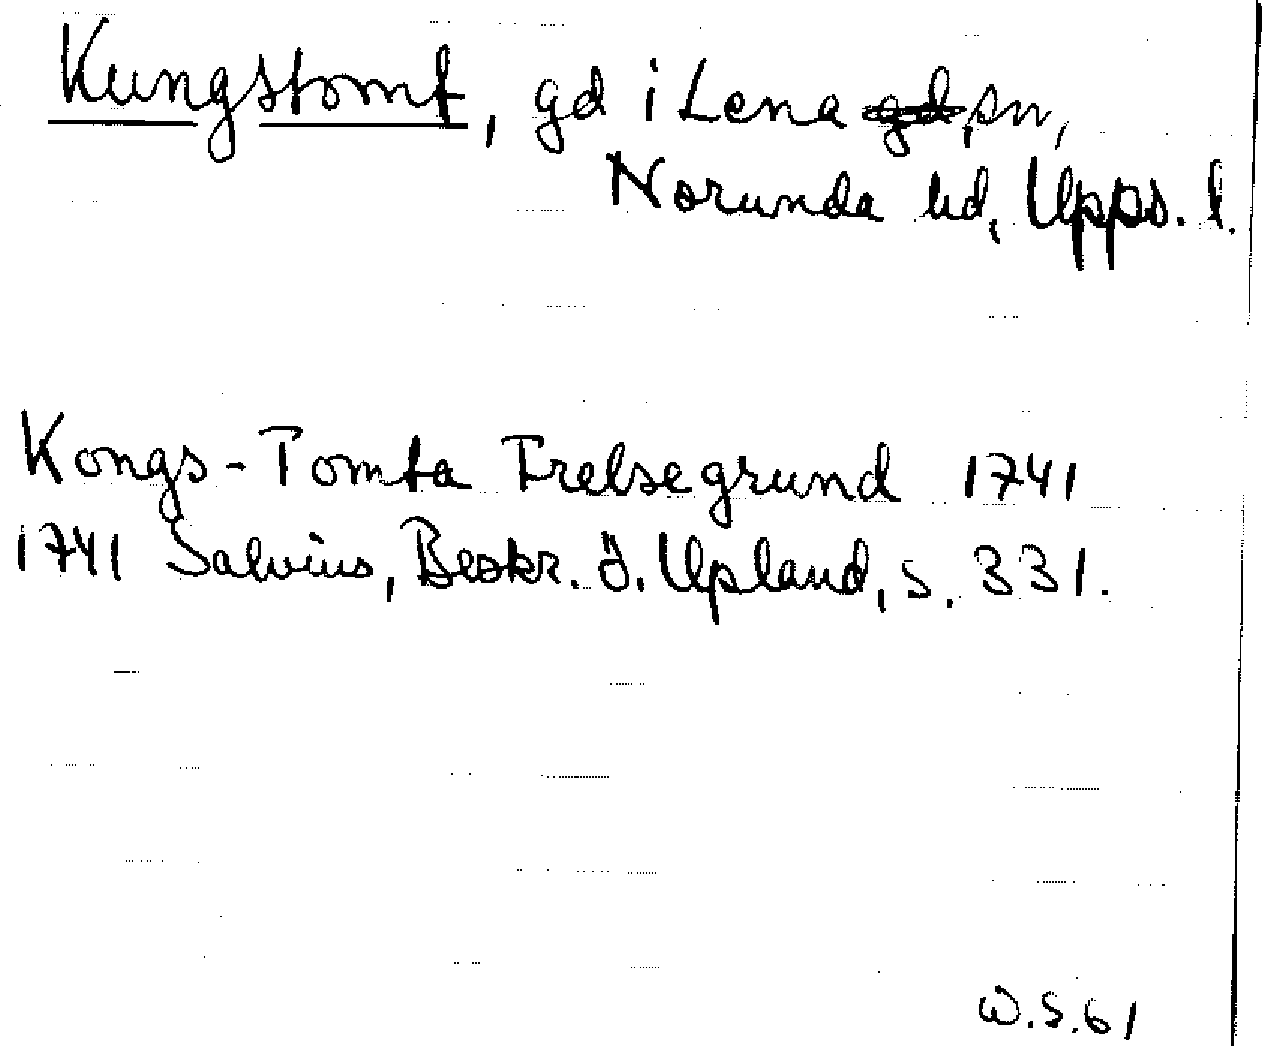 Kungstomt, gd i Lena sn,
Norunda hd, Upps. l.
Kongs-Tomta Frelsegrund 1741
1741 Salvius, Beskr. ö. Upland, s. 331.
W.S.61